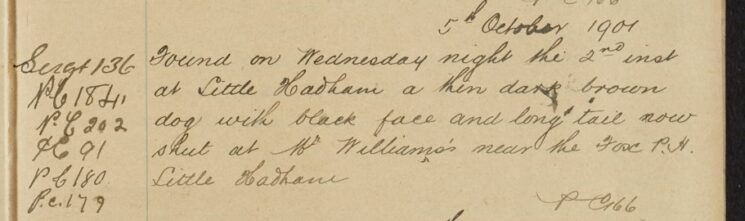 P C 166
5th October 1901
Sergt 136 Found on Wednesday night the 2nd inst
P C 184 at Little Hadham a thin dark brown
P C 202 dog with black face and long tail now
P C 91 shut at Mr Williams's near the Fox P.H.
P C 180 Little Hadham
P.c. 179
P C 166